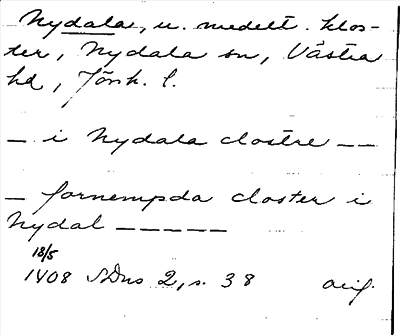 Nydala, u. medelt. klos-
ter, Nydala sn, Västra
hd, Jönk. l.
— i Nydala clostre — —
— fornempda closter i
Nydal — — — — —
18/5
1408 SDns 2, s. 38 orig.